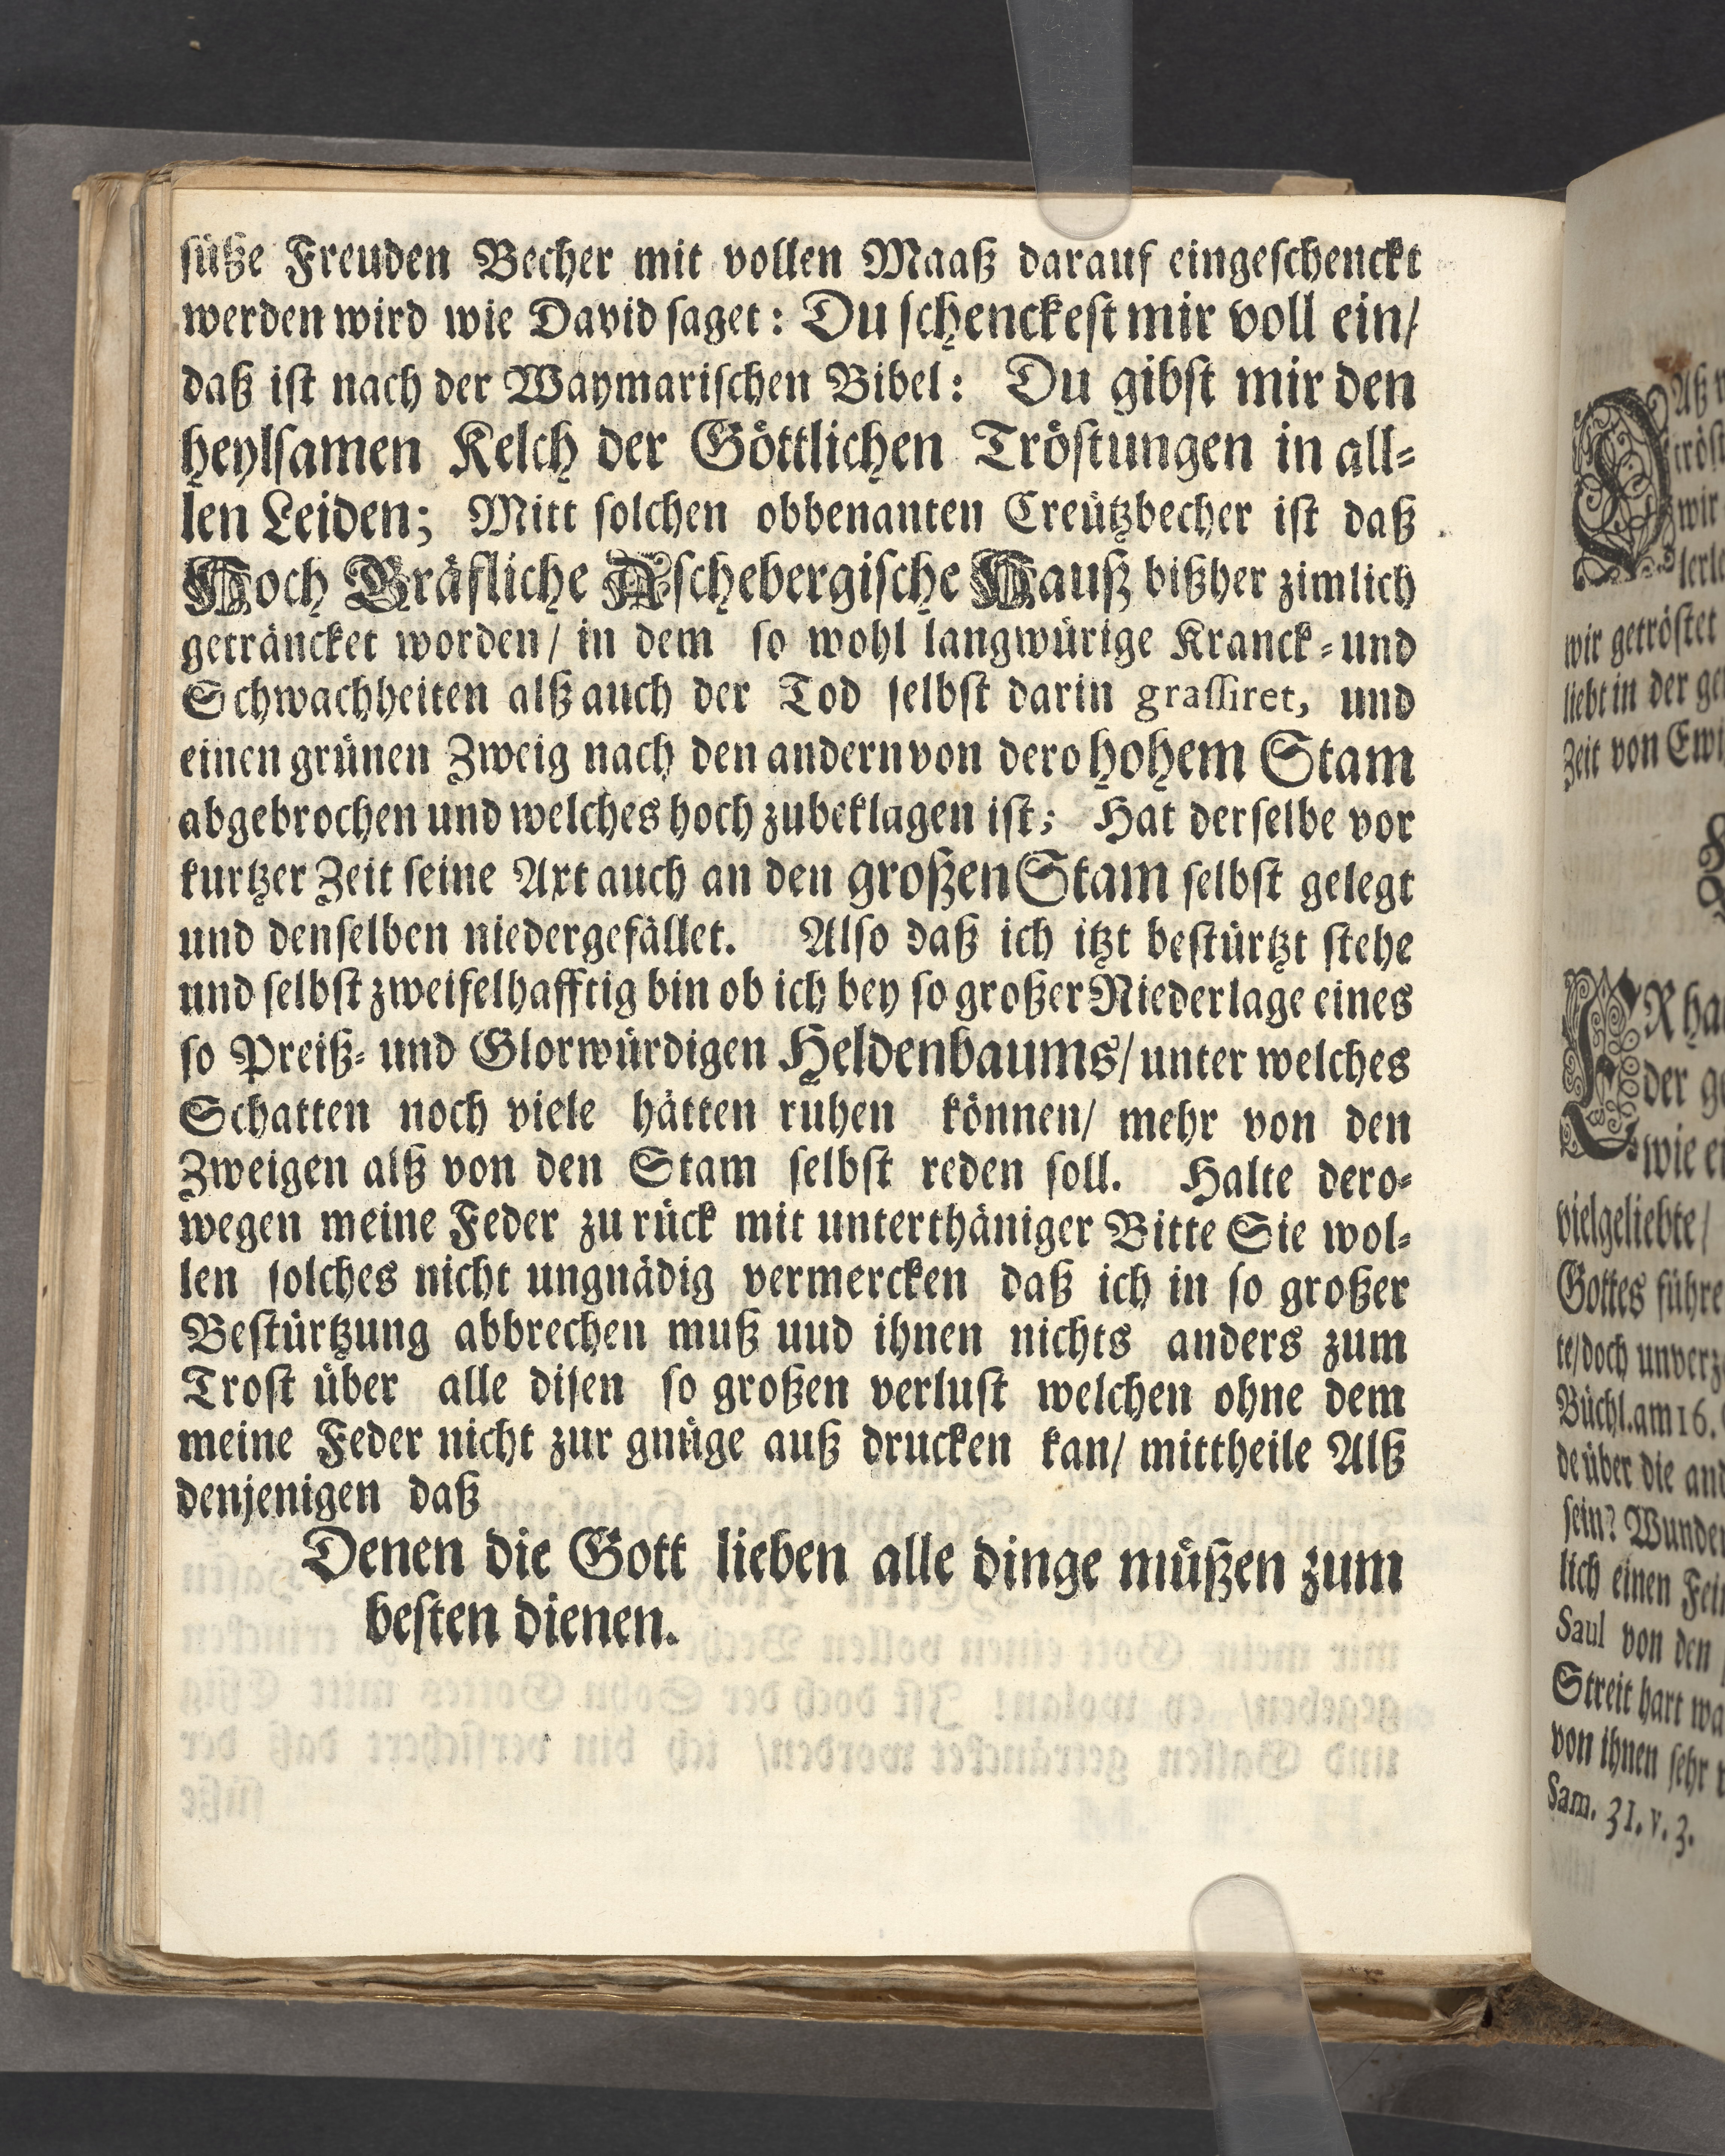 süße Freuden Becher mit vollen Maaß darauf eingeschenckt
werden wird wie David saget: Du schenckest mir voll ein/
daß ist nach der Waymarischen Bibel: Du gibst mir den
heylsamen Kelch der Göttlichen Tröstungen in all-
len Leiden; Mitt solchen obbenanten Creützbecher ist daß
Hoch Gräfliche Aschebergische Hauß bißher zimlich
geträncket worden/ in dem so wohl langwürige Kranck- und
Schwachheiten alß auch der Tod selbst darin grassiret, und
einen grünen Zweig nach den andern von dero hohem Stam
abgebrochen und welches hoch zubeklagen ist; Hat derselbe vor
kurtzer Zeit seine Axt auch an den großen Stam selbst gelegt
und denselben niedergefället. Also daß ich itzt bestürtzt stehe
und selbst zweifelhafftig bin ob ich bey so großer Niederlage eines
so Preiß- und Glorwürdigen Heldenbaums/ unter welches
Schatten noch viele hätten ruhen können/ mehr von den
Zweigen alß von den Stam selbst reden soll. Halte dero-
wegen meine Feder zu rück mit unterthäniger Bitte Sie wol-
len solches nicht ungnädig vermercken daß ich in so großer
Bestürtzung abbrechen muß uud ihnen nichts anders zum
Trost über alle disen so großen verlust welchen ohne dem
meine Feder nicht zur gnüge auß drucken kan/ mittheile Alß
denjenigen daß
Denen die Gott lieben alle dinge müßen zum
besten dienen.
wir
wir getröstet
liebt in der
Zeit von
der
wie
vielgeliebte/
Gottes führe
te/doch
Büchl. am 16.
de über die
sein? Wunder
lich einen
Saul von den
Streit hart
von ihnen sehr
Sam. 31. v. 3.